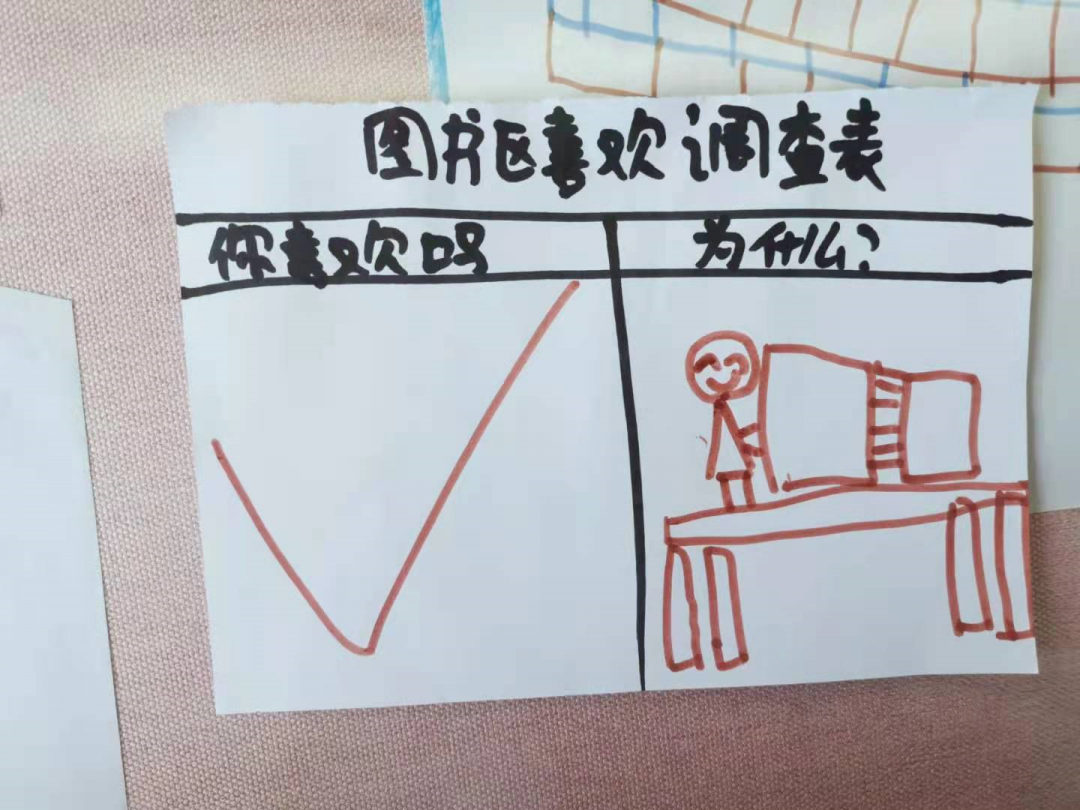 图书区喜欢调查表
你喜欢吗
为什么?